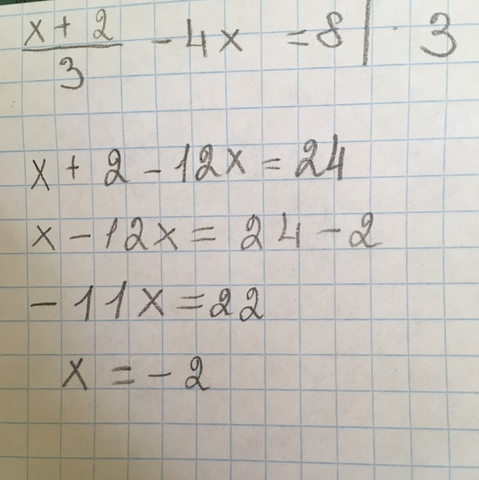 x + 2 / 3 - 4x = 8 | · 3
x + 2 - 12x = 24
x - 12x = 24 - 2
- 11x = 22
x = - 2